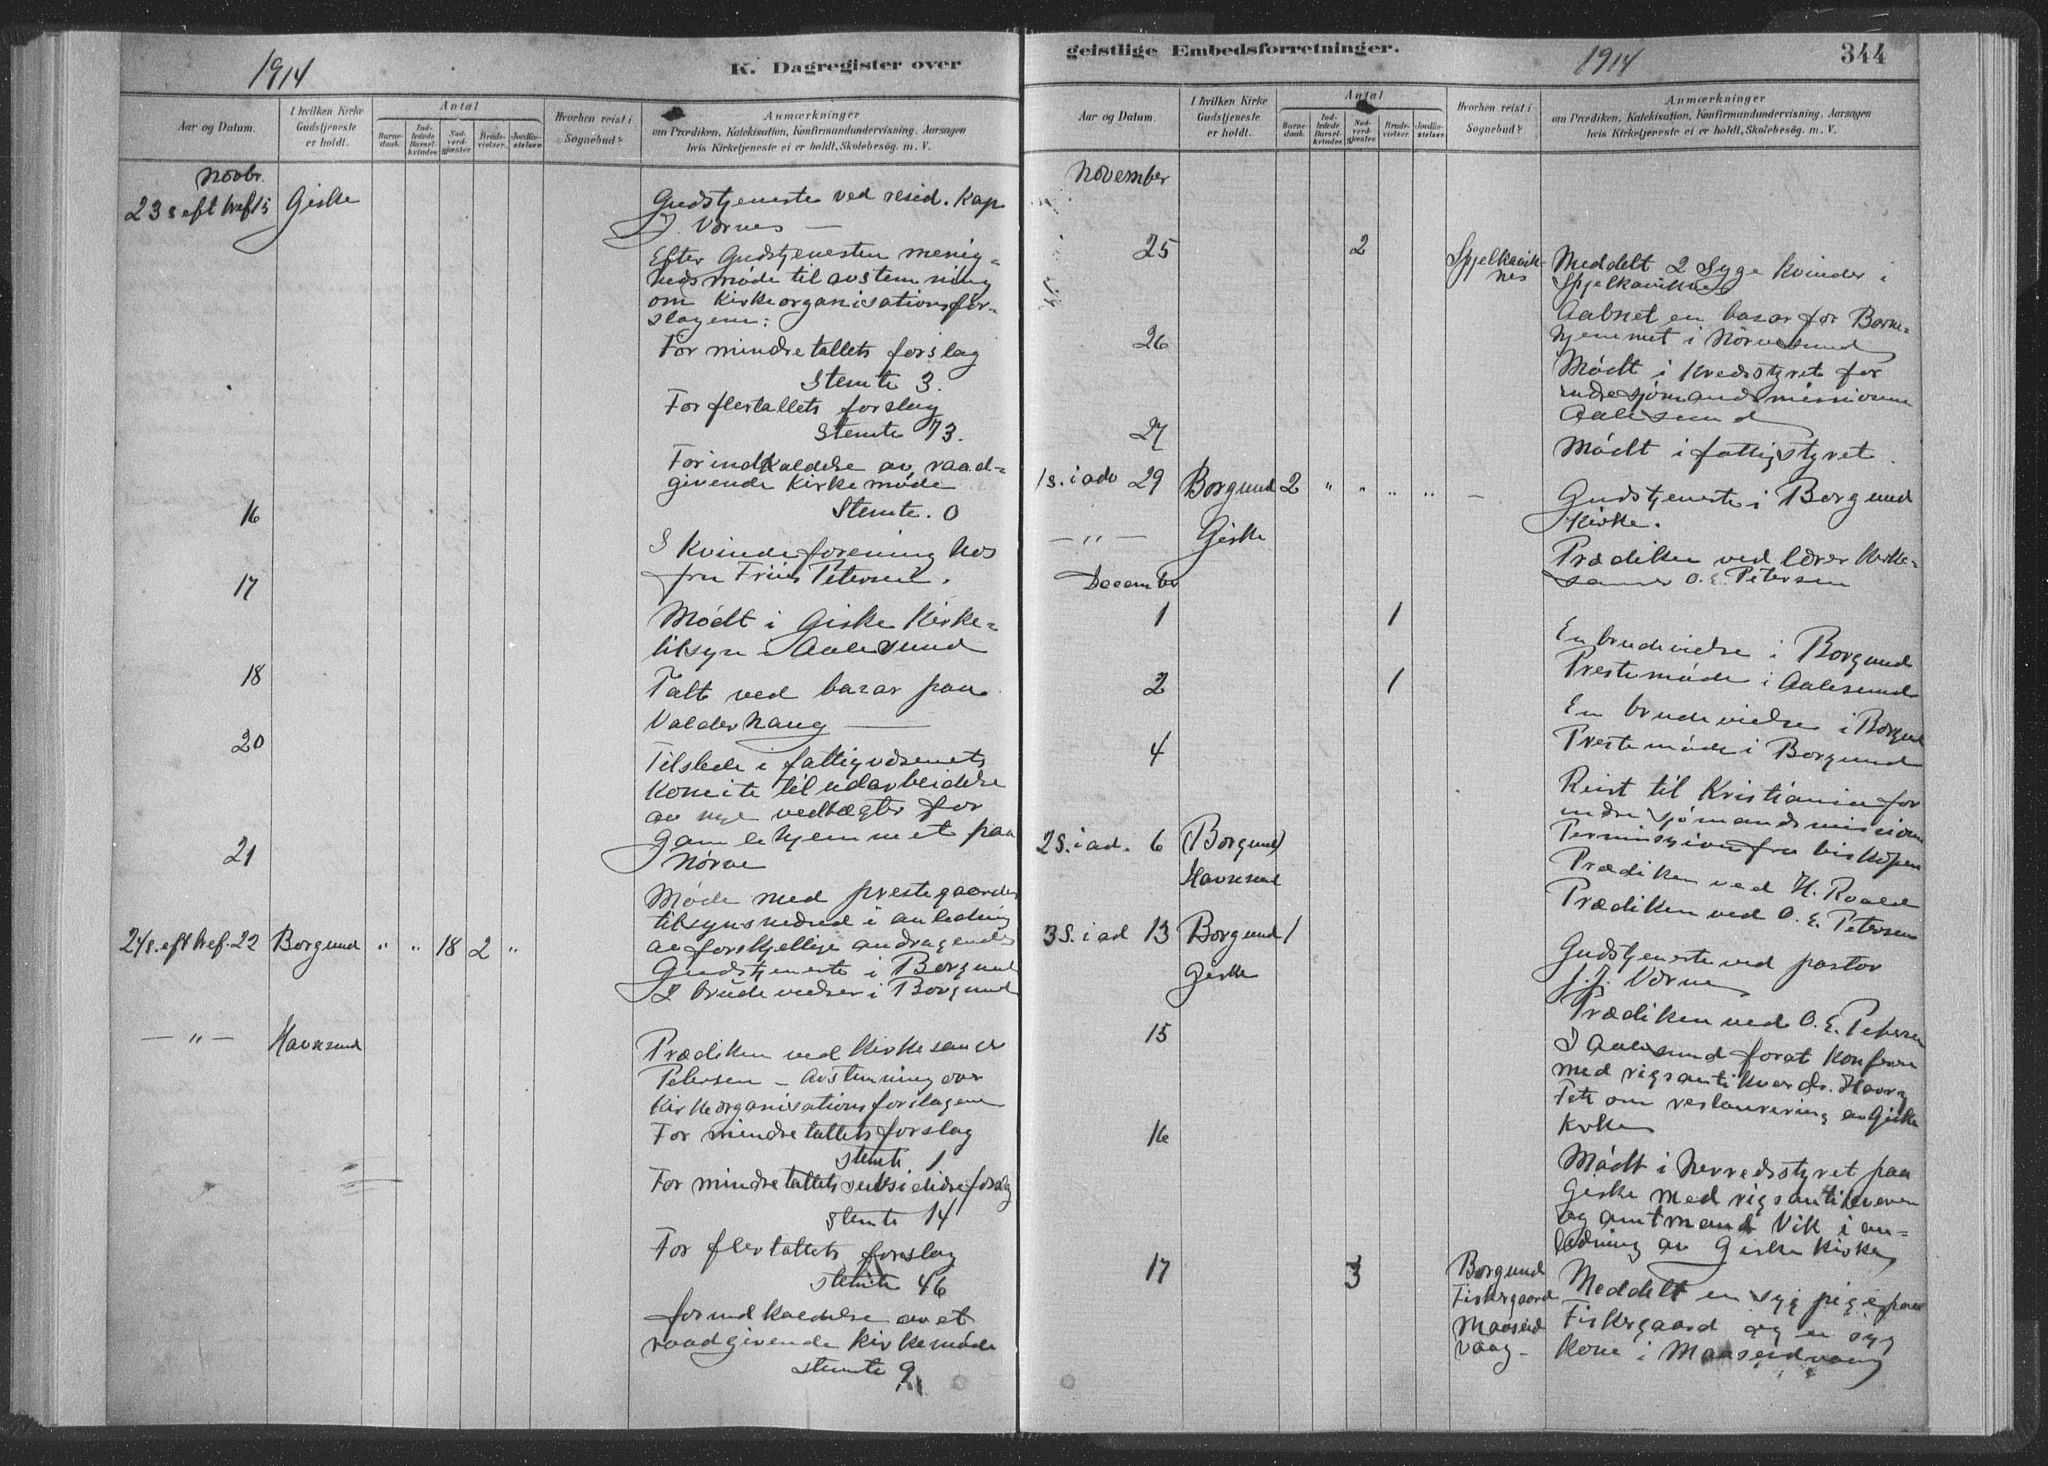 1914
K. Dagregister over
Aar og Datum.
I hvilken Kirke Gudstjeneste er holdt.
Antal
Barne-daab.
Ind-ledede Barsel-kvinder.
Nad-verd-gjester.
Brude-vielser.
Jordfæ-stelser.
Hvorhen reist i Sognebud?
Anmærkninger
om Prædiken, Katekisation, Konfirmandundervisning, Aarsagen
hvis Kirketjeneste ei er holdt, Skolebesøg. m. V.
Novbr.
23 s eft tref 15 Giske Gudstjeneste ved resid. Kap
J. Värnes —
Efter Gudstjenesten menig-
hedsmøde til avstemning
om Kirkeorganisationsfor-
slagene:
For mindretallets forslag
Stemte 3.
For flertallets forslag
Stemte 73.
For indkaldelse av raad-
givende Kirkemøde
Stemte. 0
16
I Kvindeforening hos
fru Friis Petersen.
17
Mødt i Giske Kirke-
tilsyn i Aalesund
18
Talt ved bazar paa
Valderhaug —
20
Tilstede i fattigvæsenets
Komite til udarbeidelse
av nye vedtægter for
Gamlehjemmet paa
Nørve
21
Møde med prestegaards
tilsynsmænd i anledning
av forskjellige andragender
24 s. eft tref. 22 Borgund " " 18 2 " Gudstjeneste i Borgund
2 brudevielser i Borgund
— " — Havnsund
Prædiken ved Kirkesanger
Petersen — Avstemning over
Kirkeorganisationsforslagene
For mindretallets forslag
Stemte 1
For mindretallets subsidiære forslag
Stemte 14
For flertallets forslag
stemte 46
for indkaldelse av et
raadgivende Kirkemøde
stemte 9
geistlige Embedsforretninger.
1914
344
Aar og Datum.
I hvilken Kirke Gudstjeneste er holdt.
Antal
Barne-daab.
Ind-ledede Barsel-kvinder.
Nad-verd-gjester.
Brude-vielser.
Jordfæ-stelser.
Hvorhen reist i Sognebud?
Anmærkninger
om Prædiken, Katekisation, Konfirmandundervisning, Aarsagen
hvis Kirketjeneste ei er holdt, Skolebesøg. m. V.
November
25 2 Spjelkavik-
nes
Meddelt 2 syge kvinder i
Spjelkaviknes
26
Aabnet en bazar for Barne-
hjemmet i Nørvesund
Mødt i Kredsstyret for
indre sjømandsmissionen
Aalesund
27
Mødt i fattigstyret.
1 s. i adv 29 Borgund 2 " " " " —
Gudstjeneste i Borgund
Kirke.
— " — Giske
Prædiken ved lærer Kirke-
sanger O. E. Petersen
December
1 1
En brudevielse i Borgund
Prestemøde i Aalesund
2 1
En brudevielse i Borgund
Prestemøde i Borgund
4
Reist til Kristiania for
indre sjømandsmissionen
Permission fra biskopen
2 S. i ad. 6 (Borgund)
Prædiken ved H. Roald
Havnsund
Prædiken ved O. E. Petersen
3 S. i ad 13 Borgund 1
Gudstjeneste ved pastor
J. J. Värnes
Giske
Prædiken ved O. E. Petersen
15
I Aalesund forat konferere
med rigsantikvar dr. Harry
Fett om restaurering av Giske
Kirke
16
Mødt i herredsstyret paa
Giske med rigsantikvaren
og amtmand Vik i an-
ledning av Giske Kirke
17 3 Borgund
Fiskergaard
Maaseid
vaag —
Meddelt en syg pige paa
Fiskergaard og en syg
Kone i Maaseidvaag